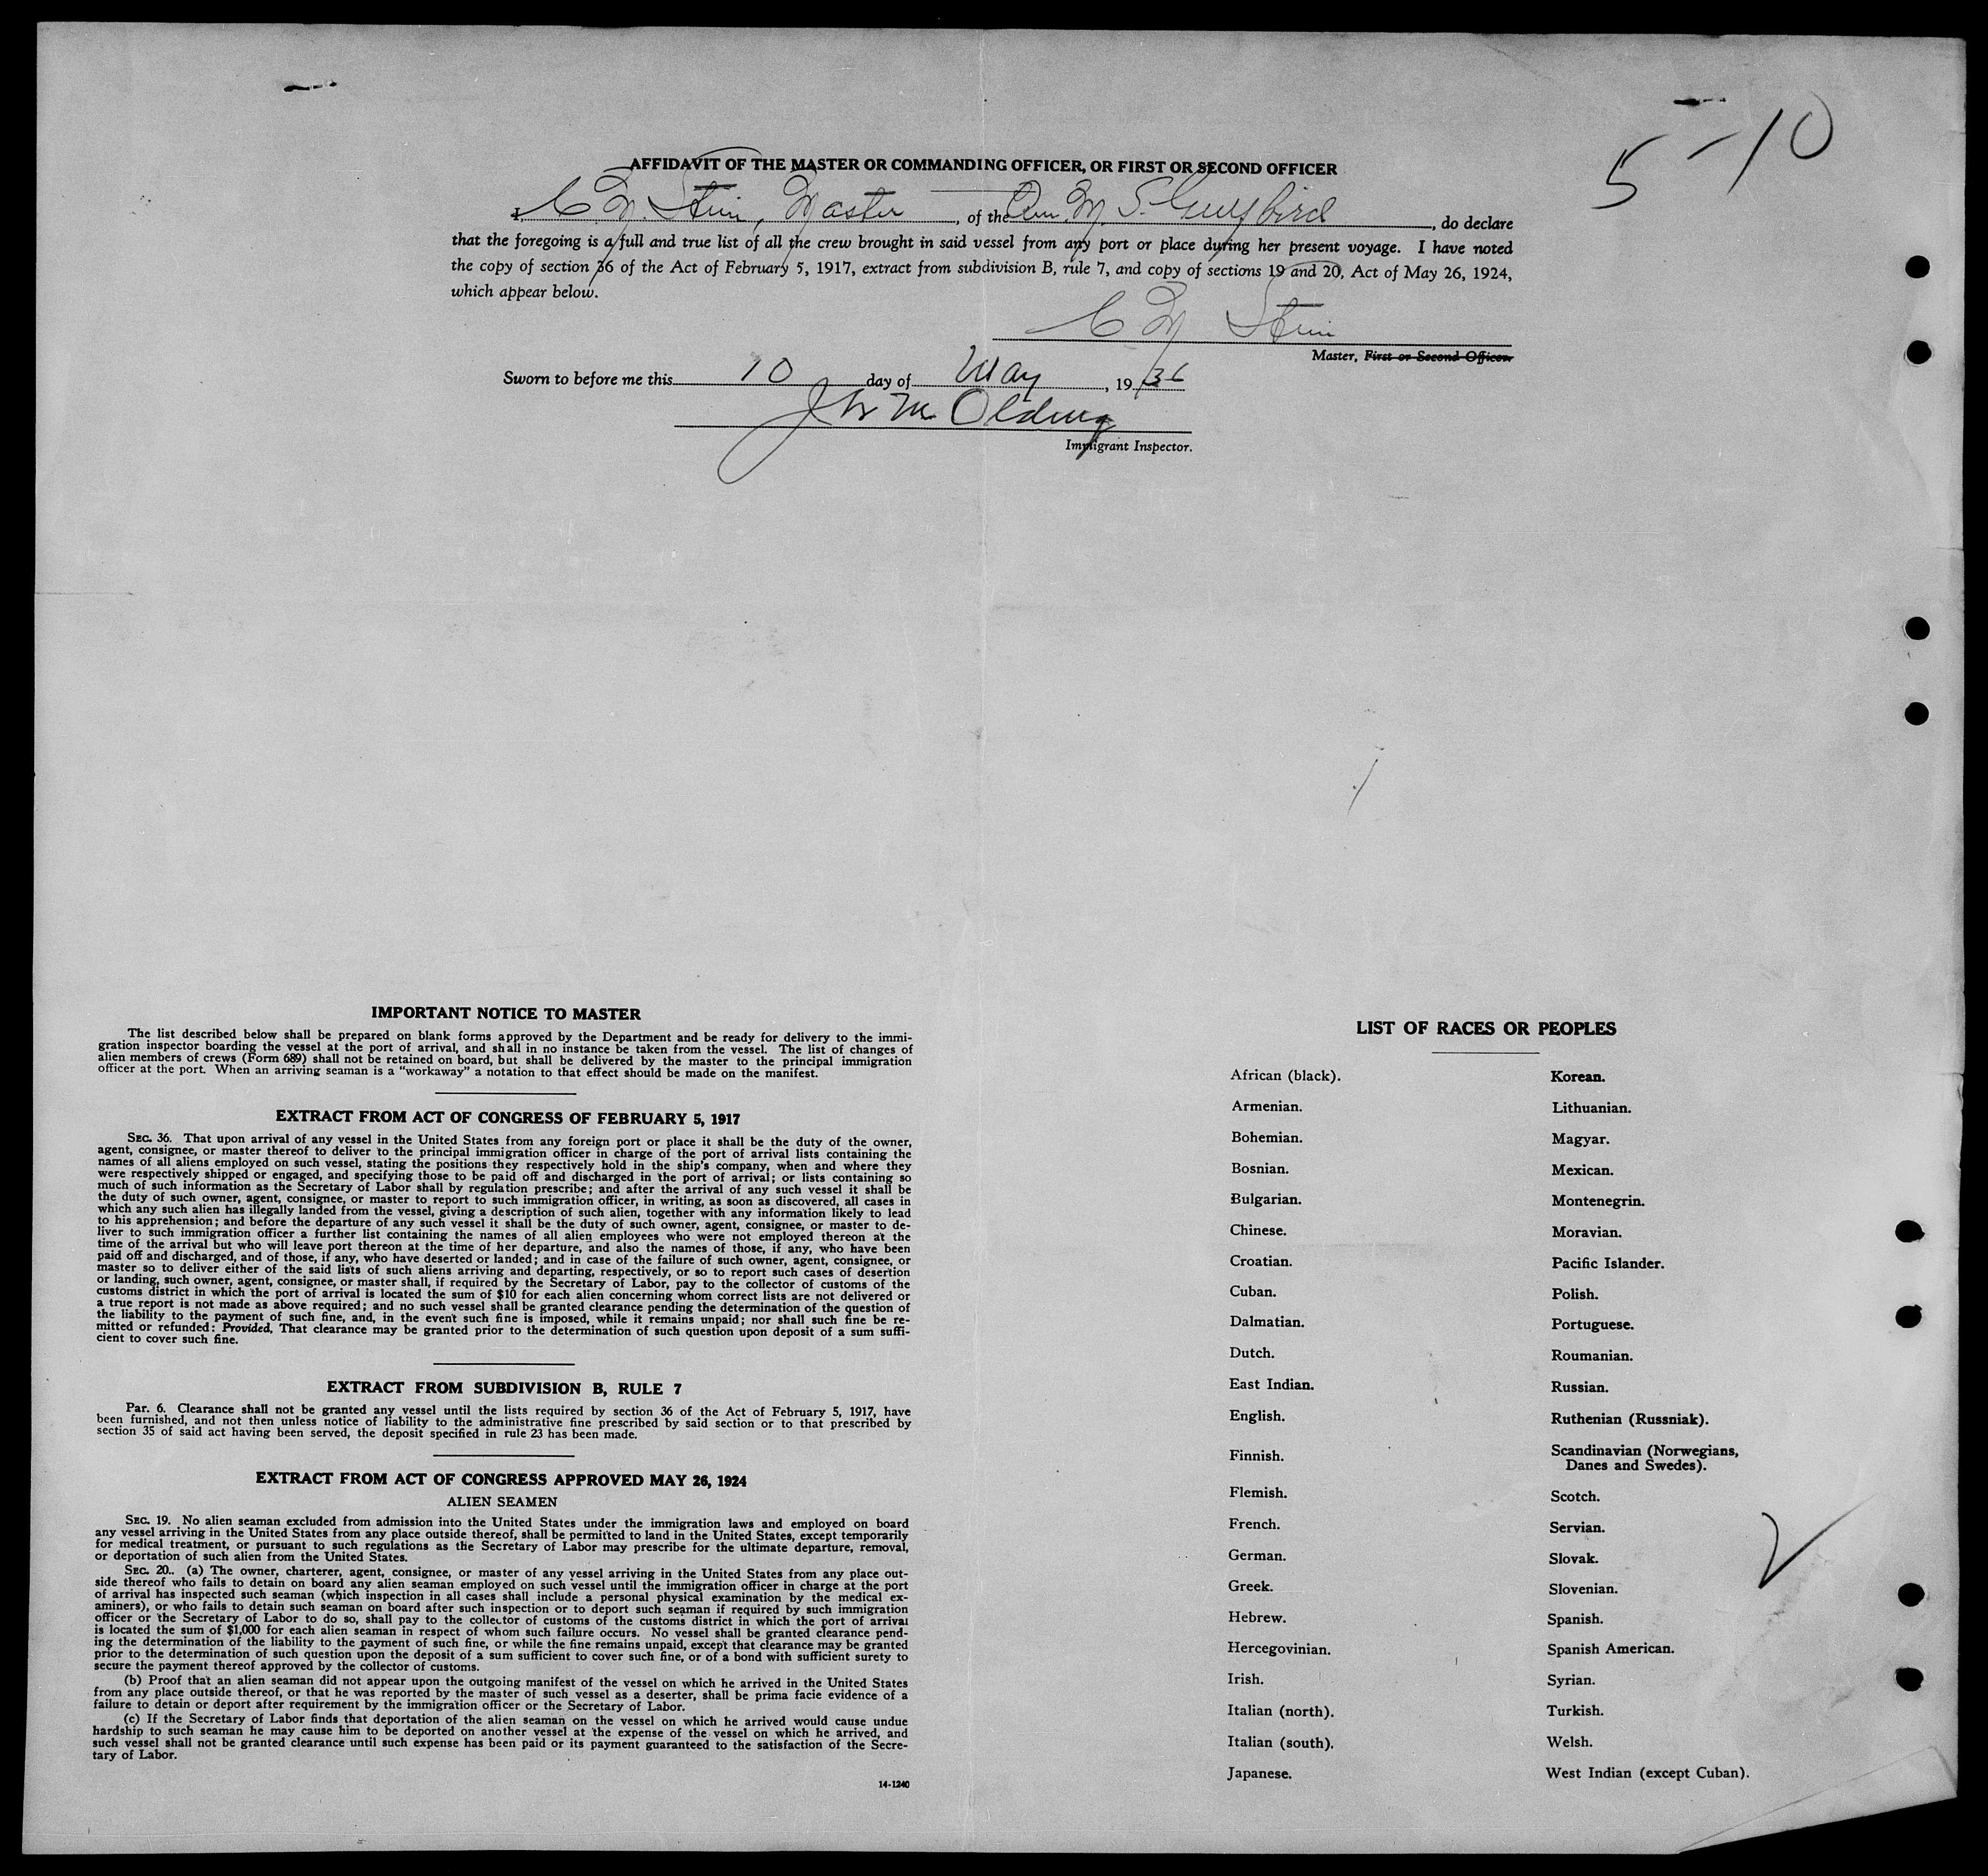 5-10
AFFIDAVIT OF THE MASTER OR COMMANDING OFFICER, OR FIRST OR SECOND OFFICER
I, C M Stein, Master, of the Am. M. S. Gulfbird, do declare
that the foregoing is a full and true list of all the crew brought in said vessel from any port or place during her present voyage. I have noted
the copy of section 36 of the Act of February 5, 1917, extract from subdivision B, rule 7, and copy of sections 19 and 20, Act of May 26, 1924,
which appear below.
C M Stein
Master, First or Second Officer.
Sworn to before me this 10 day of May, 1936
Olding
Immigrant Inspector.
IMPORTANT NOTICE TO MASTER
The list described below shall be prepared on blank forms approved by the Department and be ready for delivery to the immi-
gration inspector boarding the vessel at the port of arrival, and shall in no instance be taken from the vessel. The list of changes of
alien members of crews (Form 689) shall not be retained on board, but shall be delivered by the master to the principal immigration
officer at the port. When an arriving seaman is a "workaway" a notation to that effect should be made on the manifest.
EXTRACT FROM ACT OF CONGRESS OF FEBRUARY 5, 1917
SEC. 36. That upon arrival of any vessel in the United States from any foreign port or place it shall be the duty of the owner,
agent, consignee, or master thereof to deliver to the principal immigration officer in charge of the port of arrival lists containing the
names of all aliens employed on such vessel, stating the positions they respectively hold in the ship's company, when and where they
were respectively shipped or engaged, and specifying those to be paid off and discharged in the port of arrival; or lists containing so
much of such information as the Secretary of Labor shall by regulation prescribe; and after the arrival of any such vessel it shall be
the duty of such owner, agent, consignee, or master to report to such immigration officer, in writing, as soon as discovered, all cases in
which any such alien has illegally landed from the vessel, giving a description of such alien, together with any information likely to lead
to his apprehension; and before the departure of any such vessel it shall be the duty of such owner, agent, consignee, or master to de-
liver to such immigration officer a further list containing the names of all alien employees who were not employed thereon at the
time of the arrival but who will leave port thereon at the time of her departure, and also the names of those, if any, who have been
paid off and discharged, and of those, if any, who have deserted or landed; and in case of the failure of such owner, agent, consignee, or
master so to deliver either of the said lists of such aliens arriving and departing, respectively, or so to report such cases of desertion
or landing, such owner, agent, consignee, or master shall, if required by the Secretary of Labor, pay to the collector of customs of the
customs district in which the port of arrival is located the sum of $10 for each alien concerning whom correct lists are not delivered or
a true report is not made as above required; and no such vessel shall be granted clearance pending the determination of the question of
the liability to the payment of such fine, and, in the event such fine is imposed, while it remains unpaid; nor shall such fine be re-
mitted or refunded: Provided, That clearance may be granted prior to the determination of such question upon deposit of a sum suffi-
cient to cover such fine.
EXTRACT FROM SUBDIVISION B, RULE 7
Par. 6. Clearance shall not be granted any vessel until the lists required by section 36 of the Act of February 5, 1917, have
been furnished, and not then unless notice of liability to the administrative fine prescribed by said section or to that prescribed by
section 35 of said act having been served, the deposit specified in rule 23 has been made.
EXTRACT FROM ACT OF CONGRESS APPROVED MAY 26, 1924
ALIEN SEAMEN
SEC. 19. No alien seaman excluded from admission into the United States under the immigration laws and employed on board
any vessel arriving in the United States from any place outside thereof, shall be permitted to land in the United States, except temporarily
for medical treatment, or pursuant to such regulations as the Secretary of Labor may prescribe for the ultimate departure, removal,
or deportation of such alien from the United States.
SEC. 20.. (a) The owner, charterer, agent, consignee, or master of any vessel arriving in the United States from any place out-
side thereof who fails to detain on board any alien seaman employed on such vessel until the immigration officer in charge at the port
of arrival has inspected such seaman (which inspection in all cases shall include a personal physical examination by the medical ex-
aminers), or who fails to detain such seaman on board after such inspection or to deport such seaman if required by such immigration
officer or the Secretary of Labor to do so, shall pay to the collector of customs of the customs district in which the port of arrival
is located the sum of $1,000 for each alien seaman in respect of whom such failure occurs. No vessel shall be granted clearance pend-
ing the determination of the liability to the payment of such fine, or while the fine remains unpaid, except that clearance may be granted
prior to the determination of such question upon the deposit of a sum sufficient to cover such fine, or of a bond with sufficient surety to
secure the payment thereof approved by the collector of customs.
(b) Proof that an alien seaman did not appear upon the outgoing manifest of the vessel on which he arrived in the United States
from any place outside thereof, or that he was reported by the master of such vessel as a deserter, shall be prima facie evidence of a
failure to detain or deport after requirement by the immigration officer or the Secretary of Labor.
(c) If the Secretary of Labor finds that deportation of the alien seaman on the vessel on which he arrived would cause undue
hardship to such seaman he may cause him to be deported on another vessel at the expense of the vessel on which he arrived, and
such vessel shall not be granted clearance until such expense has been paid or its payment guaranteed to the satisfaction of the Secre-
tary of Labor.
14-1240
LIST OF RACES OR PEOPLES
African (black).
Armenian.
Bohemian.
Bosnian.
Bulgarian.
Chinese.
Croatian.
Cuban.
Dalmatian.
Dutch.
East Indian.
English.
Finnish.
Flemish.
French.
German.
Greek.
Hebrew.
Hercegovinian.
Irish.
Italian (north).
Italian (south).
Japanese.
Korean.
Lithuanian.
Magyar.
Mexican.
Montenegrin.
Moravian.
Pacific Islander.
Polish.
Portuguese.
Roumanian.
Russian.
Ruthenian (Russniak).
Scandinavian (Norwegians,
Danes and Swedes).
Scotch.
Servian.
Slovak.
Slovenian.
Spanish.
Spanish American.
Syrian.
Turkish.
Welsh.
West Indian (except Cuban).